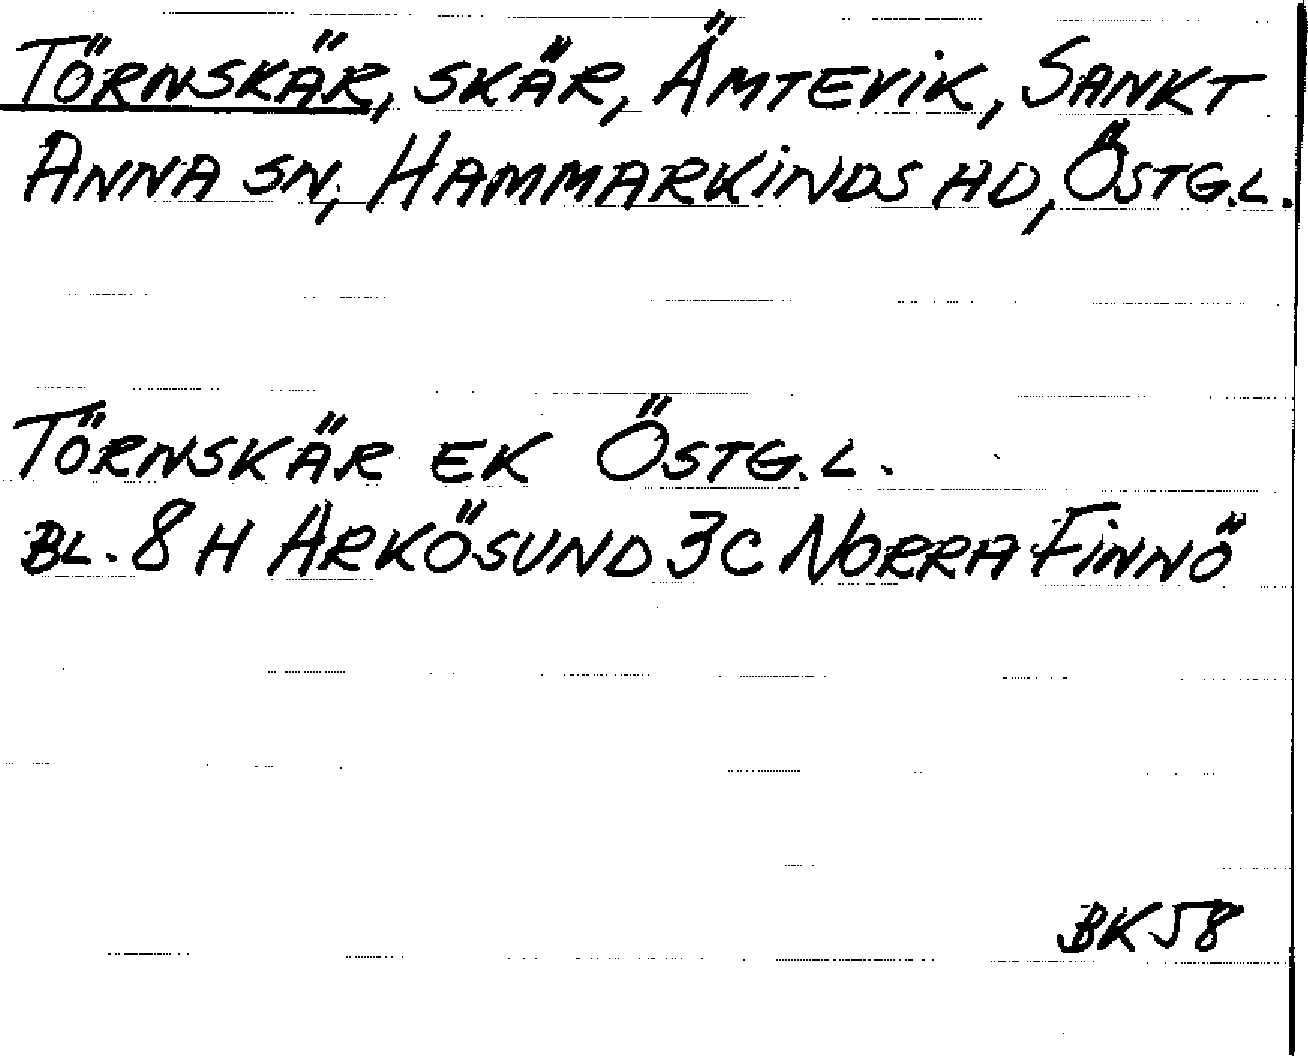 TÖRNSKÄR, SKÄR, ÄMTEVIK, SANKT
ANNA SN, HAMMARKINDS HD, ÖSTG.L.
TÖRNSKÄR EK ÖSTG.L.
BL. 8 H ARKÖSUND 3C NORRA FINNÖ
BK58